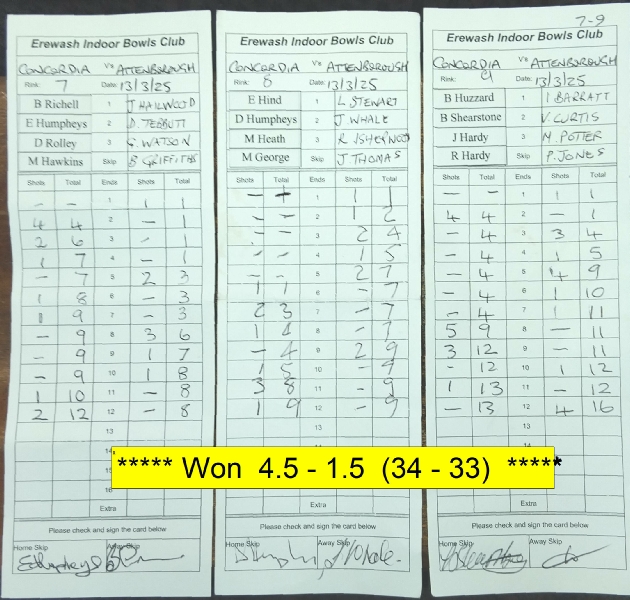 7-9
Erewash Indoor Bowls Club
CONCORDIA V's ATTENBOROUGH
Rink: 7 Date: 13/3/25
B Richell 1 J HAILWOOD
E Humpheys 2 D. TEBBUTT
D Rolley 3 G. WATSON
M Hawkins Skip B GRIFFITHS
Shots Total Ends Shots Total
- - 1 1 1
4 4 2 - 1
2 6 3 - 1
1 7 4 - 1
- 7 5 2 3
1 8 6 - 3
1 9 7 - 3
- 9 8 3 6
- 9 9 1 7
- 9 10 1 8
1 10 11 - 8
2 12 12 - 8
13
14
15
16
Extra
Please check and sign the card below
Home Skip Away Skip
Erewash Indoor Bowls Club
CONCORDIA V's ATTENBOROUGH
Rink: 8 Date: 13/3/25
E Hind 1 L STEWART
D Humpheys 2 J WHALE
M Heath 3 R ISHERWOOD
M George Skip J THOMAS
Shots Total Ends Shots Total
- - 1 1 1
- - 2 1 2
- - 3 2 4
- - 4 1 5
- - 5 2 7
1 1 6 - 7
2 3 7 - 7
1 4 8 - 7
- 4 9 2 9
1 5 10 - 9
3 8 11 - 9
1 9 12 - 9
13
Extra
Please check and sign the card below
Home Skip Away Skip
Erewash Indoor Bowls Club
CONCORDIA V's ATTENBOROUGH
Rink: 9 Date: 13/3/25
B Huzzard 1 I BARRATT
B Shearstone 2 V. CURTIS
J Hardy 3 M. POTTER
R Hardy Skip P. JONES
Shots Total Ends Shots Total
- - 1 1 1
4 4 2 - 1
- 4 3 3 4
- 4 4 1 5
- 4 5 4 9
- 4 6 1 10
- 4 7 1 11
5 9 8 - 11
3 12 9 - 11
- 12 10 1 12
1 13 11 - 12
- 13 12 4 16
13
Extra
Please check and sign the card below
Home Skip Away Skip
***** Won 4.5 - 1.5 (34 - 33) *****